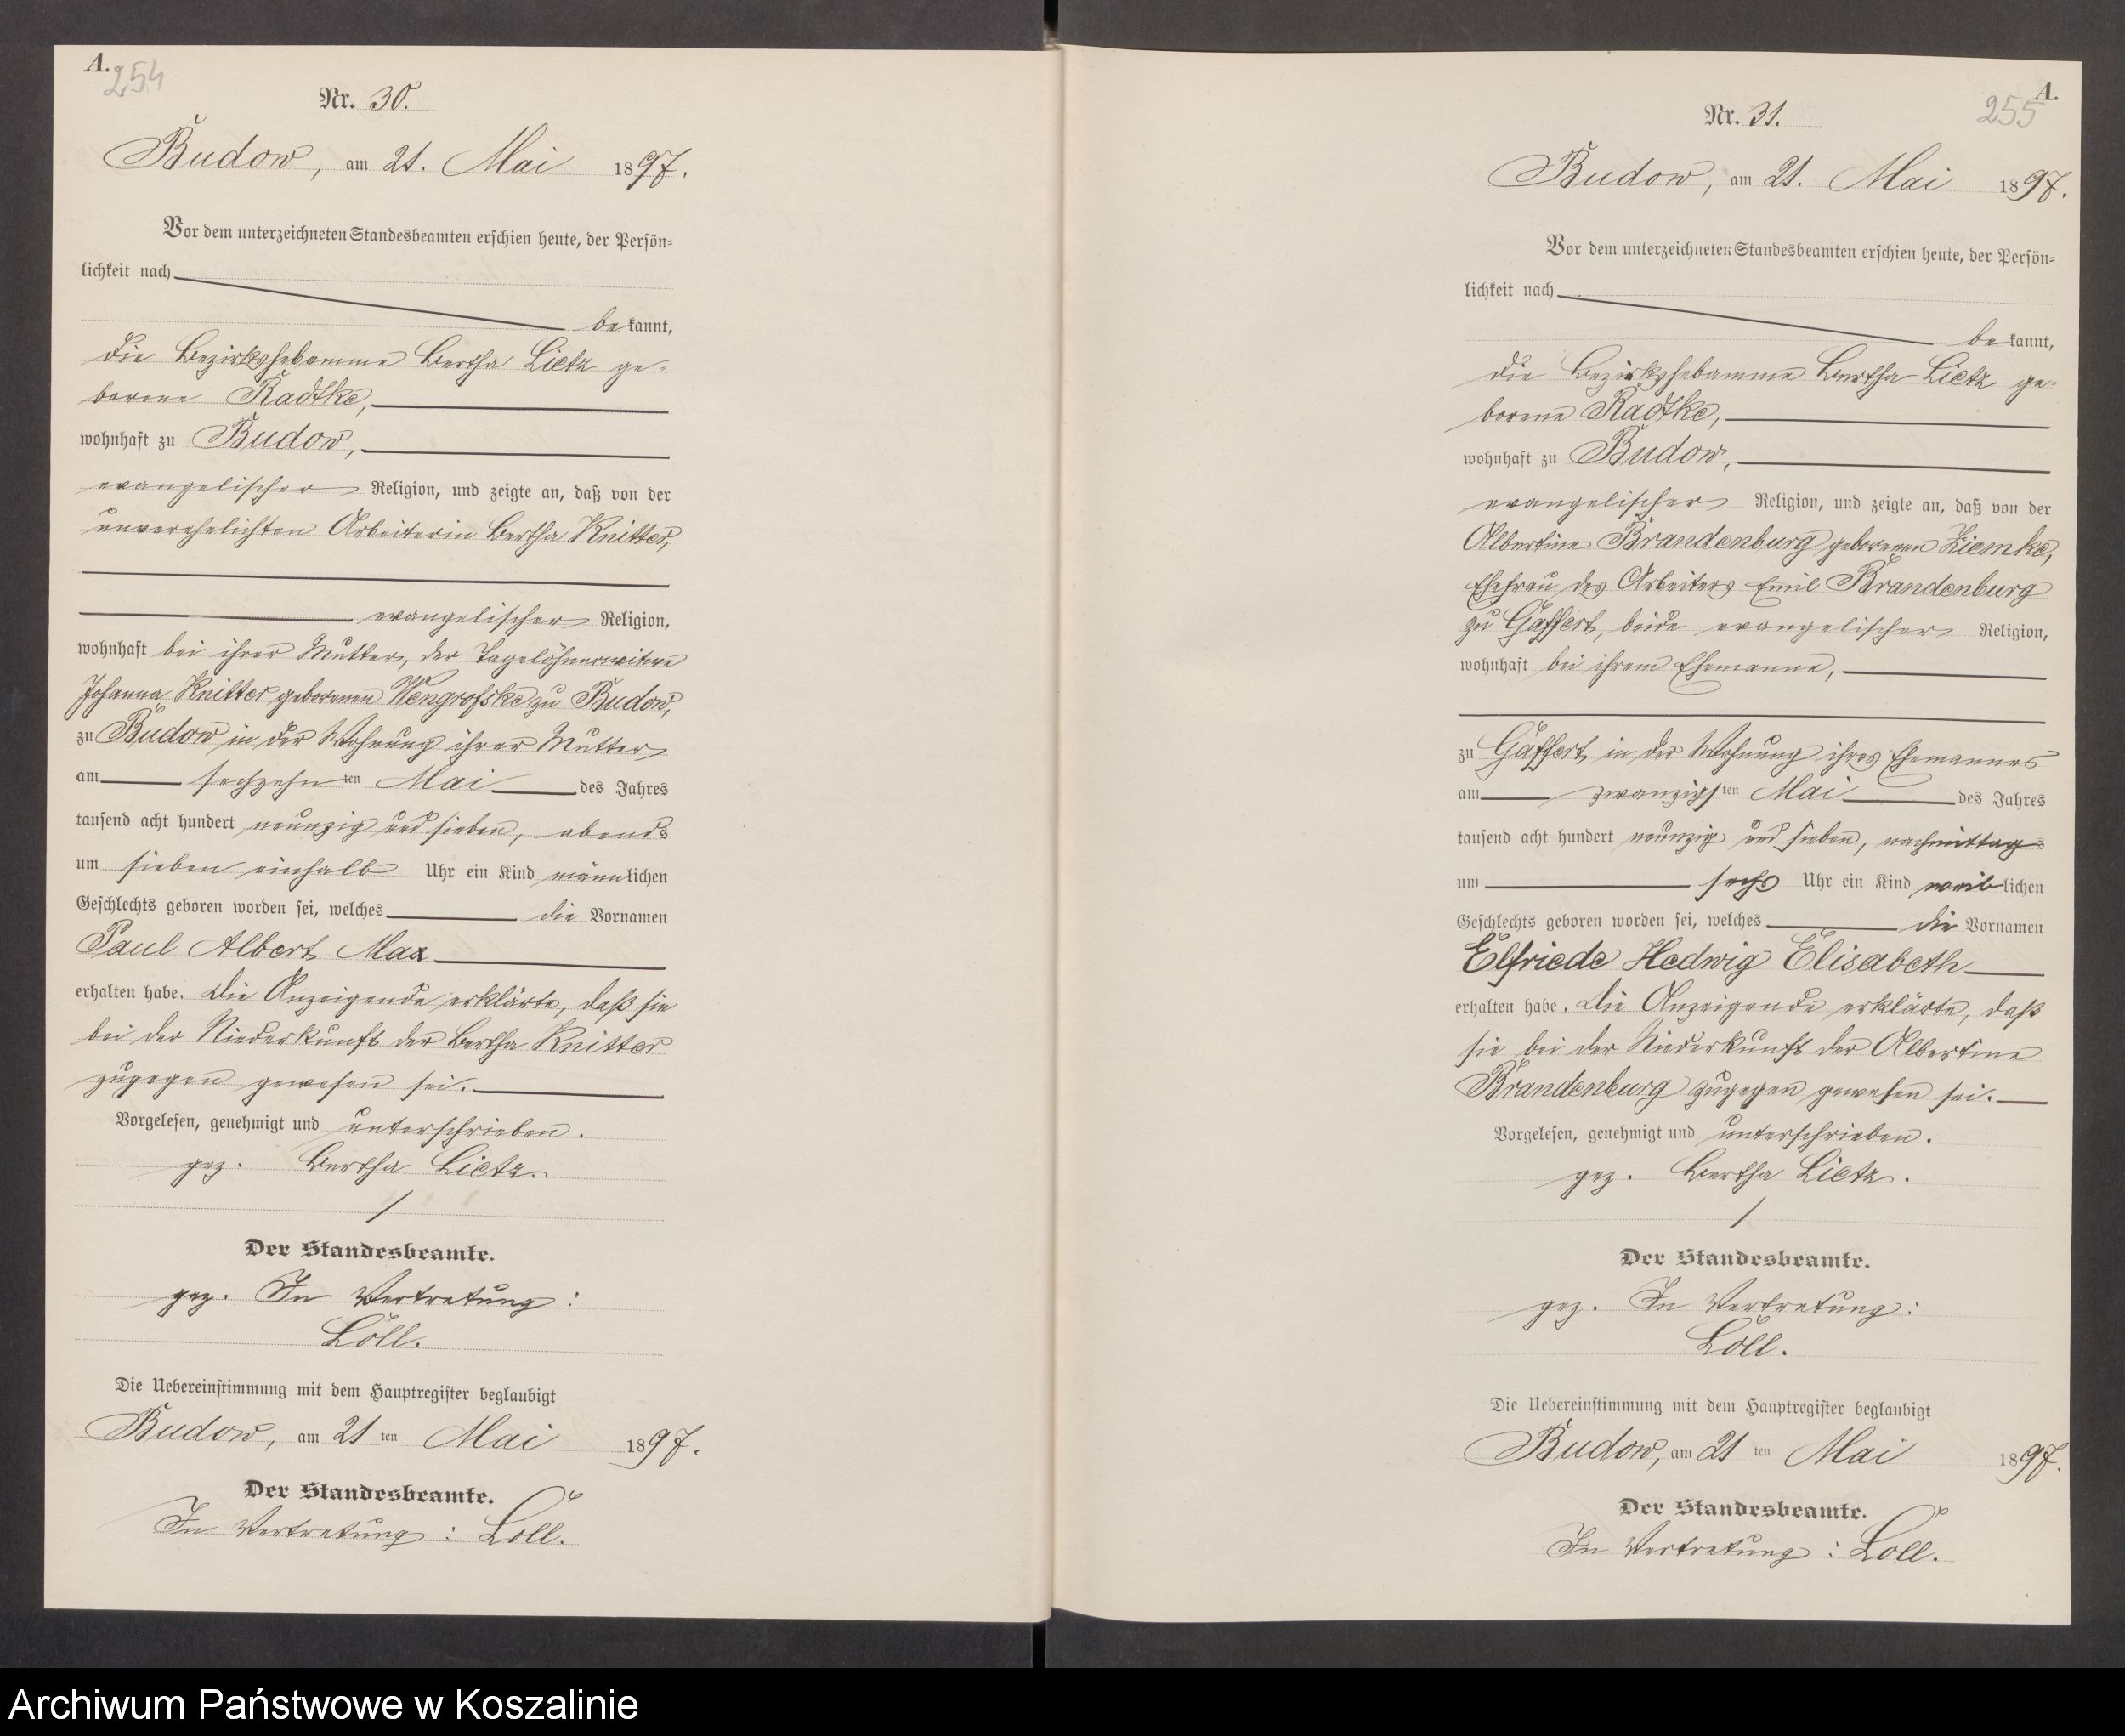 A.
254
Nr. 30.
Budow, am 21. Mai 1897.
Vor dem unterzeichneten Standesbeamten erschien heute, der Persön-
lichkeit nach
bekannt,
die Bezirkshebamme Bertha Lietz ge-
borene Radtke,
wohnhaft zu Budow,
evangelischer Religion, und zeigte an, daß von der
unverehelichten Arbeiterin Bertha Knitter,
evangelischer Religion,
wohnhaft bei ihrer Mutter, der Tagelöhnerwitwe
Johanna Knitter geborenen Wengrofske zu Budow,
zu Budow in der Wohnung ihrer Mutter
am sechzehnten Mai des Jahres
tausend acht hundert neunzig und sieben, abends
um sieben einhalb Uhr ein Kind männlichen
Geschlechts geboren worden sei, welches die Vornamen
Paul Albert Max
erhalten habe. Die Anzeigende erklärte, daß sie
bei der Niederkunft der Bertha Knitter
zugegen gewesen sei.
Vorgelesen, genehmigt und unterschrieben.
gez. Bertha Lietz.
Der Standesbeamte.
gez. In Vertretung:
Löll.
Die Uebereinstimmung mit dem Hauptregister beglaubigt
Budow, am 21ten Mai 1897.
Der Standesbeamte.
In Vertretung: Löll.
A.
255
Nr. 31.
Budow, am 21. Mai 1897.
Vor dem unterzeichneten Standesbeamten erschien heute, der Persön-
lichkeit nach
bekannt,
die Bezirkshebamme Bertha Lietz ge-
borene Radtke,
wohnhaft zu Budow,
evangelischer Religion, und zeigte an, daß von der
Albertine Brandenburg geborenen Ziemke,
Ehefrau des Arbeiters Emil Brandenburg
zu Gaffert, beide evangelischer Religion,
wohnhaft bei ihrem Ehemanne,
zu Gaffert in der Wohnung ihres Ehemannes
am zwanzigsten Mai des Jahres
tausend acht hundert neunzig und sieben, nachmittags
um sechs Uhr ein Kind weiblichen
Geschlechts geboren worden sei, welches die Vornamen
Elfriede Hedwig Elisabeth
erhalten habe. Die Anzeigende erklärte, daß
sie bei der Niederkunft der Albertine
Brandenburg zugegen gewesen sei.
Vorgelesen, genehmigt und unterschrieben.
gez. Bertha Lietz.
Der Standesbeamte.
gez. In Vertretung:
Löll.
Die Uebereinstimmung mit dem Hauptregister beglaubigt
Budow, am 21ten Mai 1897.
Der Standesbeamte.
In Vertretung: Löll.
Archiwum Państwowe w Koszalinie